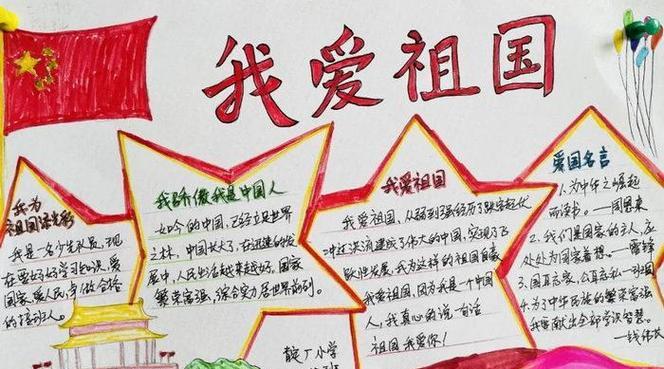 我爱祖国
我为
祖国添光彩
我是一名少先队员，现
在要好好学习知识，爱
国家，爱人民，争做合格
的接班人。
我骄傲我是中国人
如今的中国，已经立足世界
之林，中国长大了，在迅速的发
展中，人民生活越来越好。国家
繁荣富强，综合实力居世界前列。
我爱祖国
我爱祖国，从弱到强经历了跌宕起伏
跃性发展，我为这样的祖国自豪
我爱祖国，因为我是一个中国
人，我真心的说一句话
祖国我爱你！
爱国名言
1.为中华之崛起
而读书。—周恩来
2.我们是国家的主人，应
处处为国家着想。—雷锋
4.为了中华民族的繁荣富强
我要献出全部学识智慧。
—钱伟长
靛厂小学